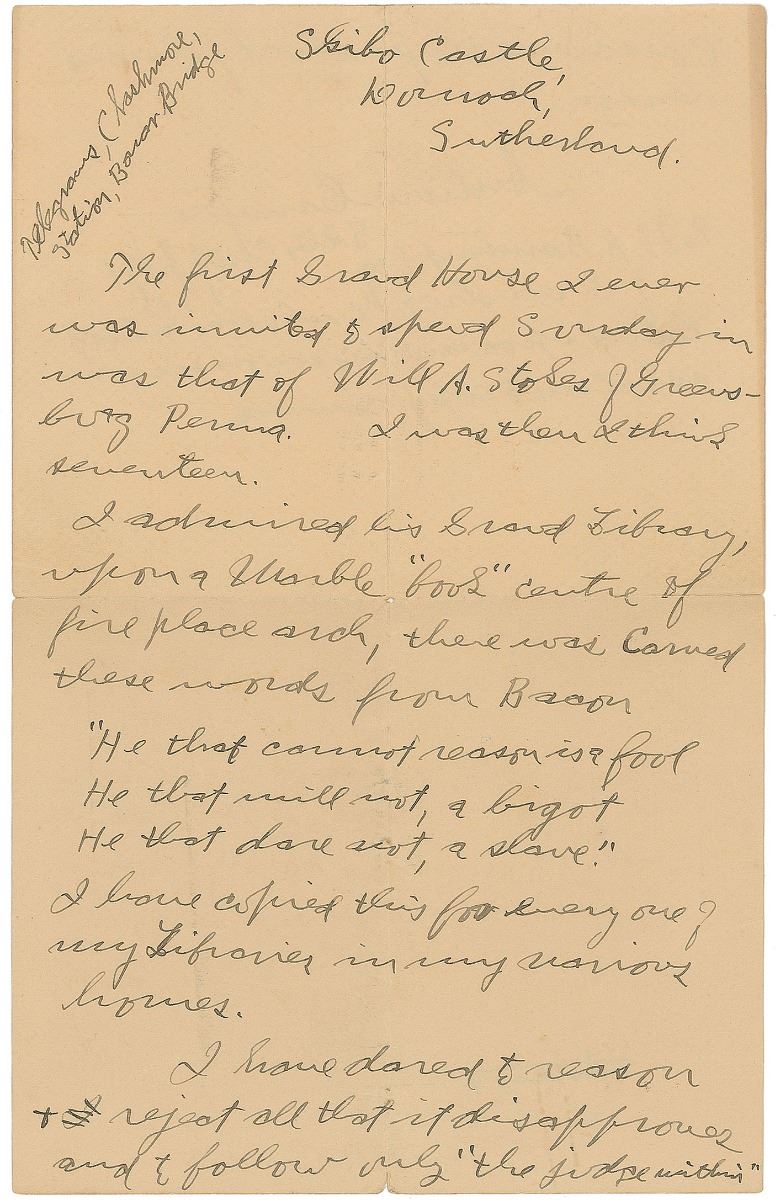 Telegrams, Clashmore,
Station, Bonar Bridge
Skibo Castle,
Dornoch,
Sutherland.
The first Grand House I ever
was invited to spend Sunday in
was that of Will A. Stokes of Greens-
burg Penna. I was then I think
seventeen.
I admired his Grand Library,
upon a Marble "book" centre of
fire place arch, there was Carved
these words from Bacon
"He that cannot reason is a fool
He that will not, a bigot
He that dare not, a slave."
I have copied this for every one of
my Libraries in my various
homes.
I have dared to reason
+ reject all that it disapproves
and to follow only "the judge within"